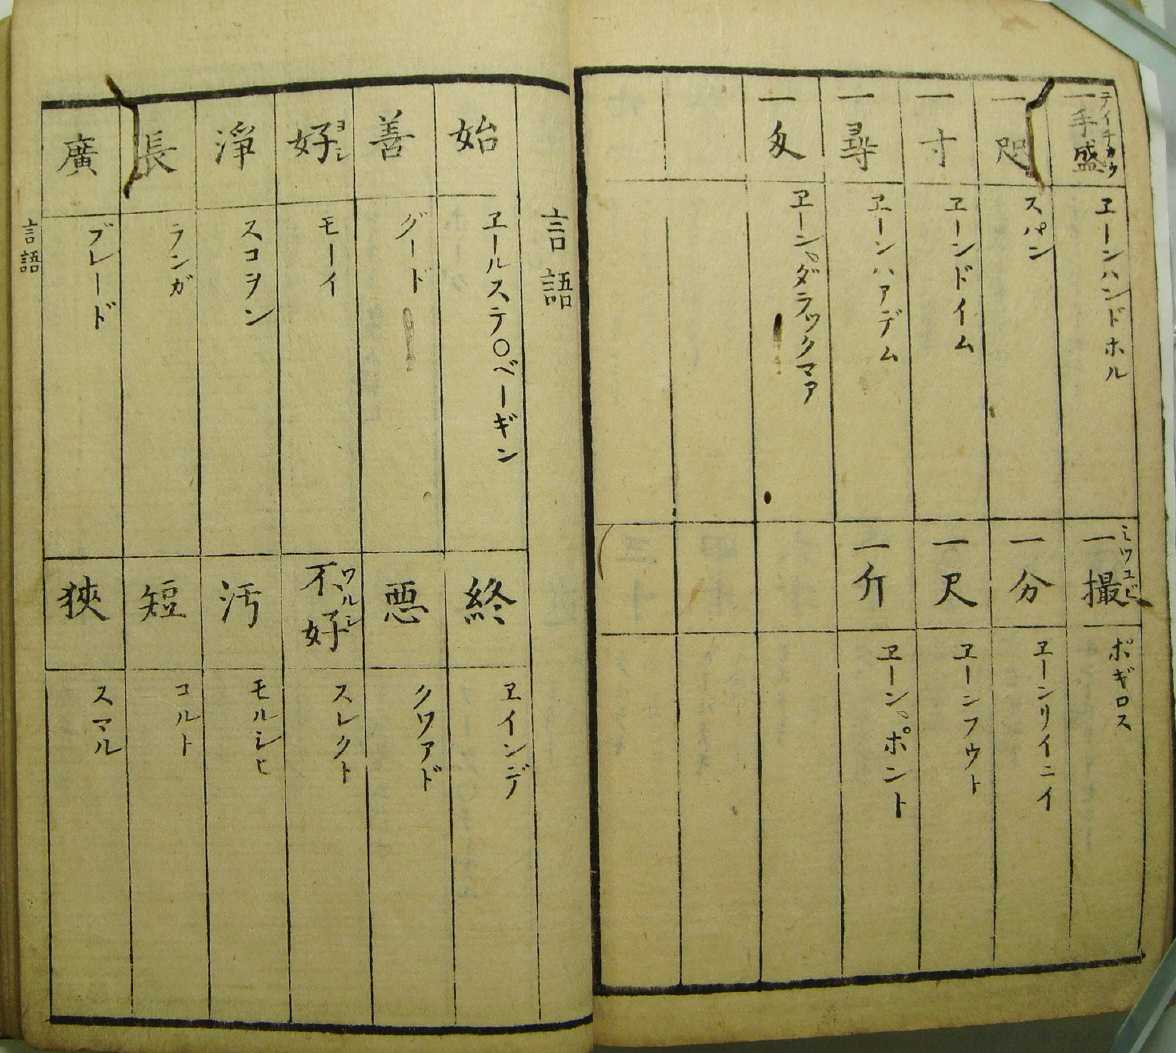 テイチカウ
一手盛
ヱーンハンドホル
一咫
スパン
一寸
ヱーンドイム
一尋
ヱーンハアデム
一匁
ヱーン、ダラックマア
ミツユビ
一撮
ポギロス
一分
ヱーンリイニイ
一尺
ヱーンフウト
一斤
ヱーン、ポント
言語
始
ヱールステ○ベーギン
善
グード
好
ヨシ
モーイ
淨
スコヲン
長
ランガ
廣
ブレード
終
ヱインデ
悪
クワアド
不好
ワルシ
スレクト
汚
モルシヒ
短
コルト
狹
スマル
言語